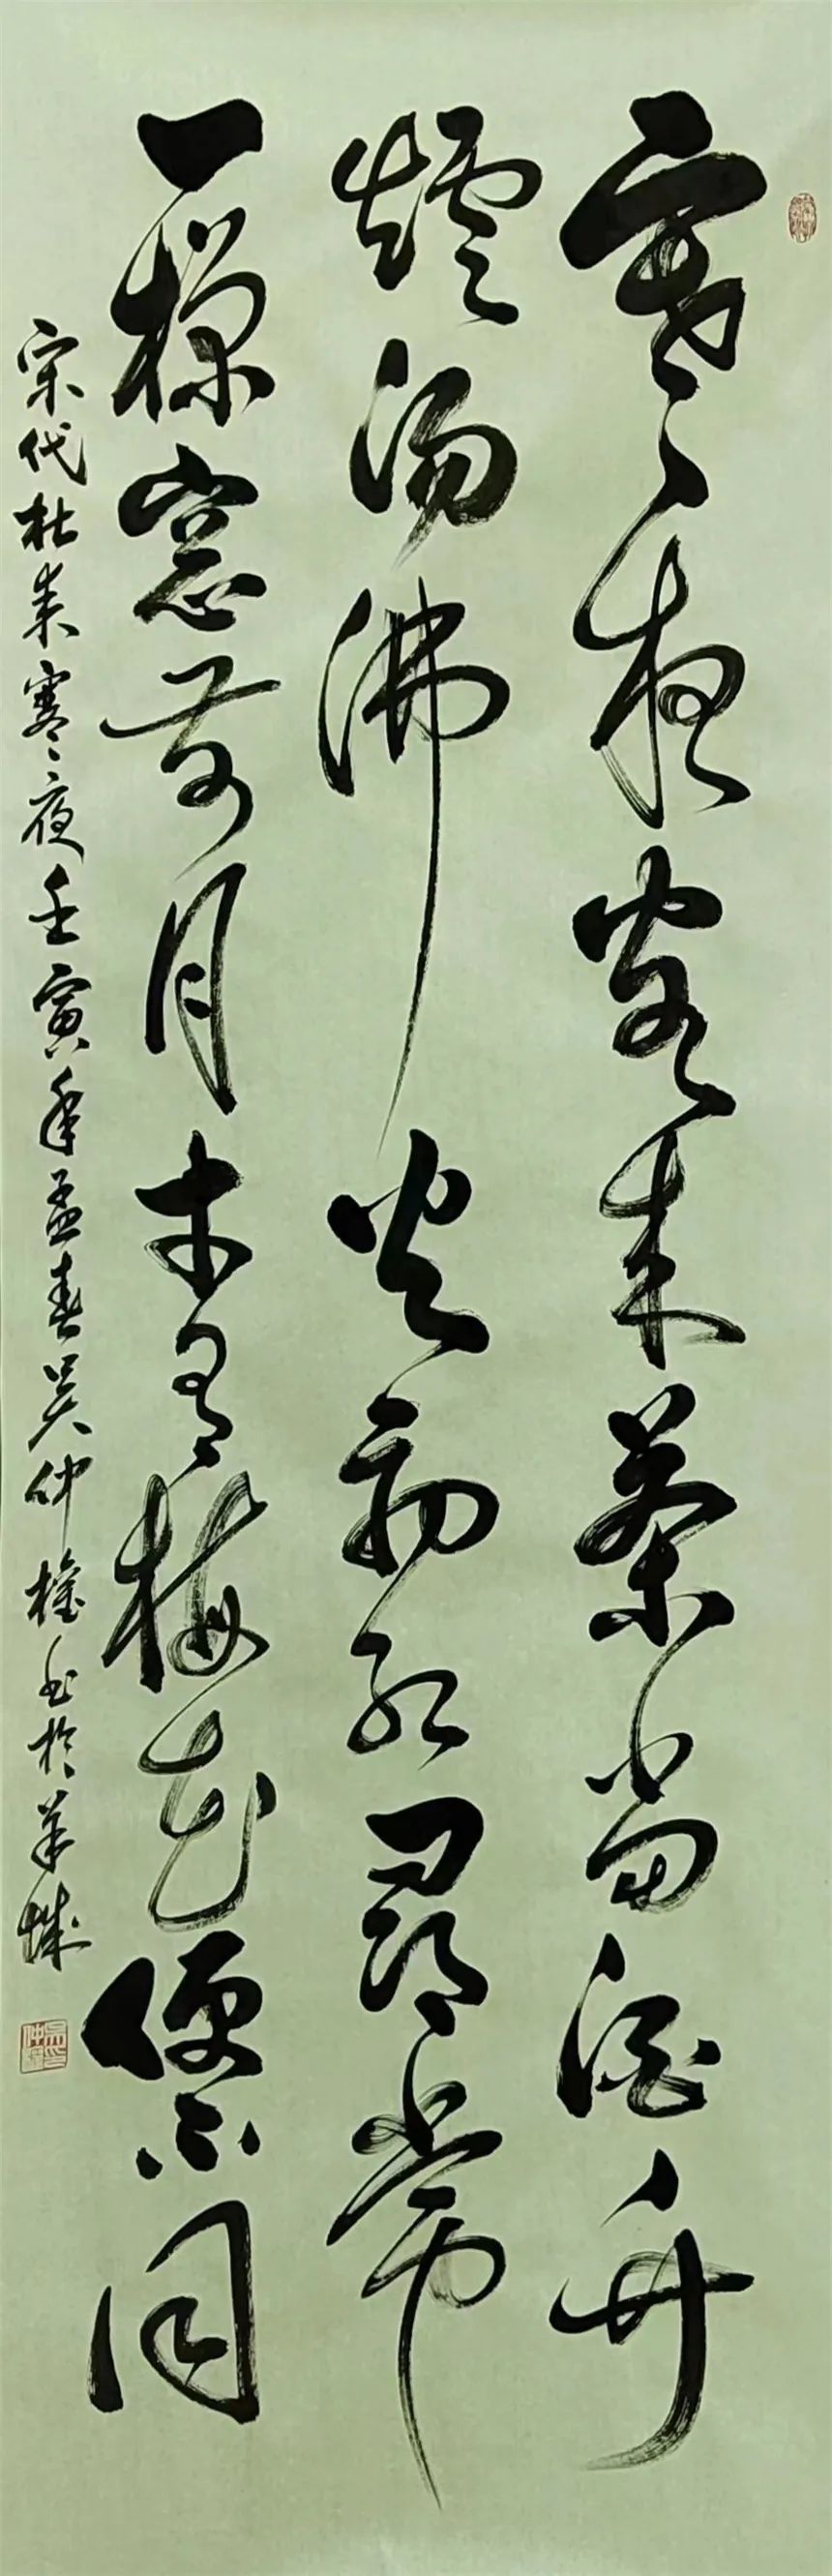 寒夜客来茶当酒竹
炉汤沸火初红寻常
一样窗前月才有梅花便不同
宋代杜耒寒夜壬寅年孟春吴仲权书於羊城